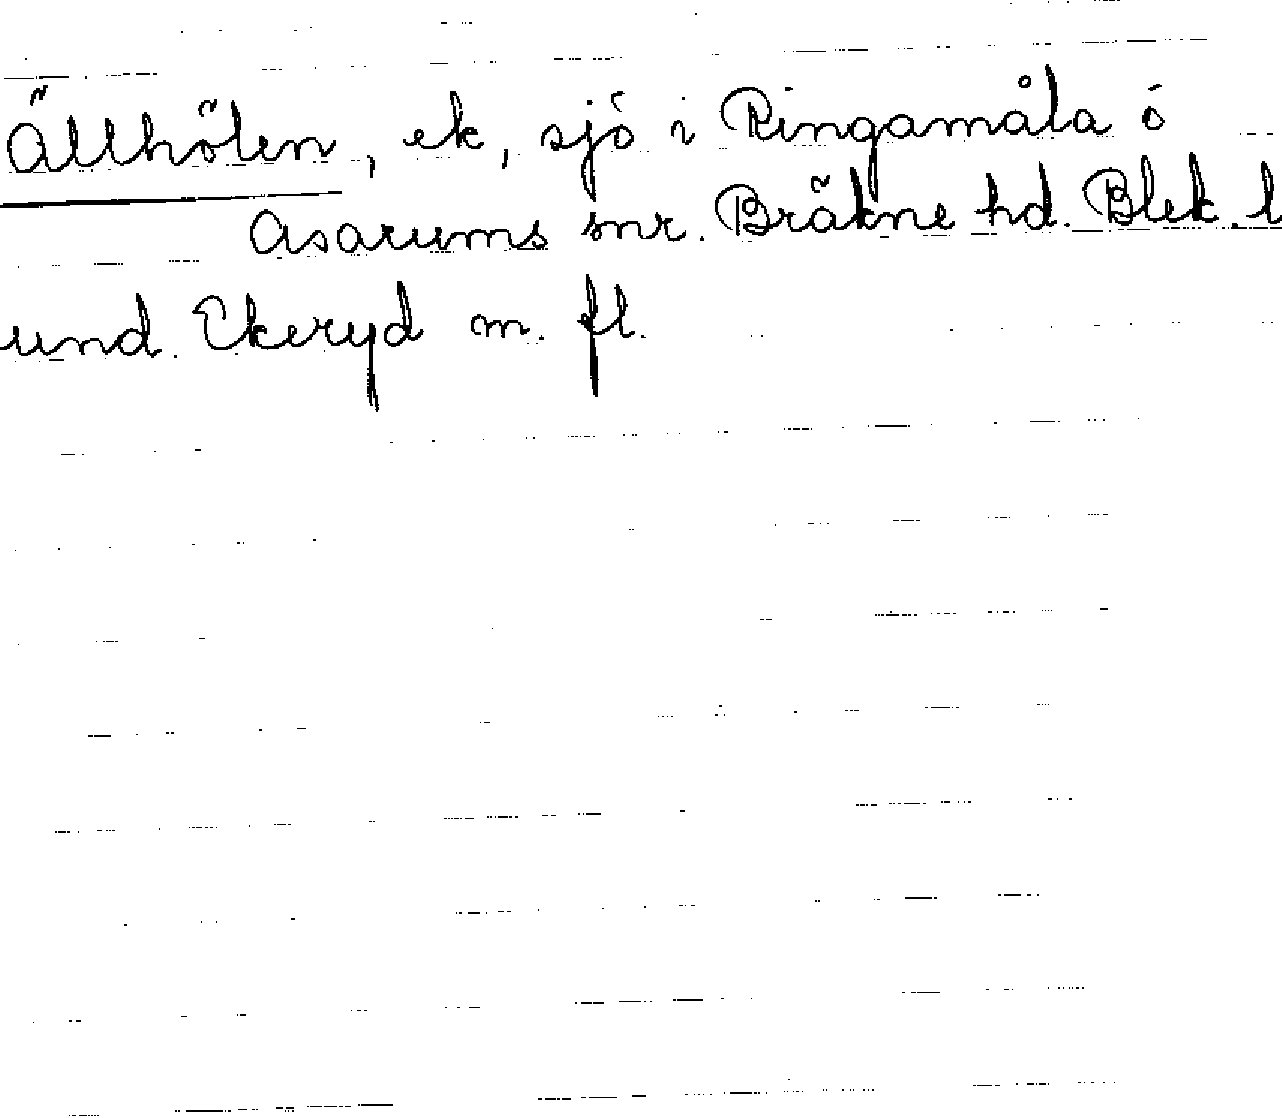 Ällhölen, ek, sjö i Ringamåla ó
Asarums snr. Bräkne hd. Blek. l
und. Ekeryd m. fl.